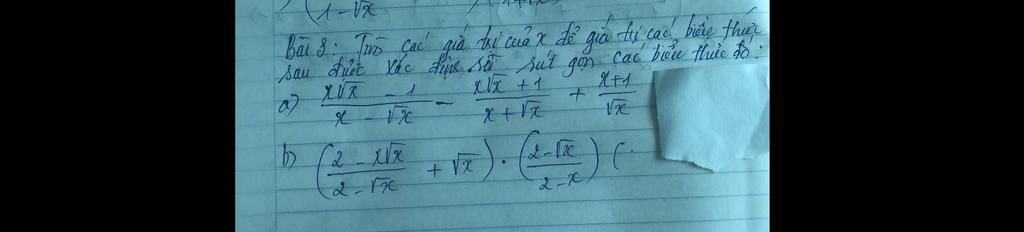 (1-√x
Bài 3: Tìm các giá trị của x để giá trị các biểu thức
sau được xác định rồi rút gọn các biểu thức đó:
a) \frac{x√x - 1}{x - √x} - \frac{x√x + 1}{x + √x} + \frac{x+1}{√x}
b) (\frac{2 - x√x}{2 - √x} + √x) . (\frac{2-√x}{2-x}) (